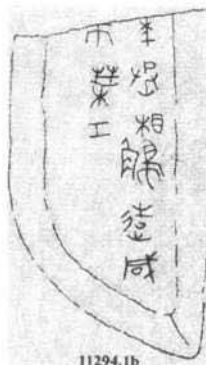 年丞相觸造咸
帀葉工
11294.1b